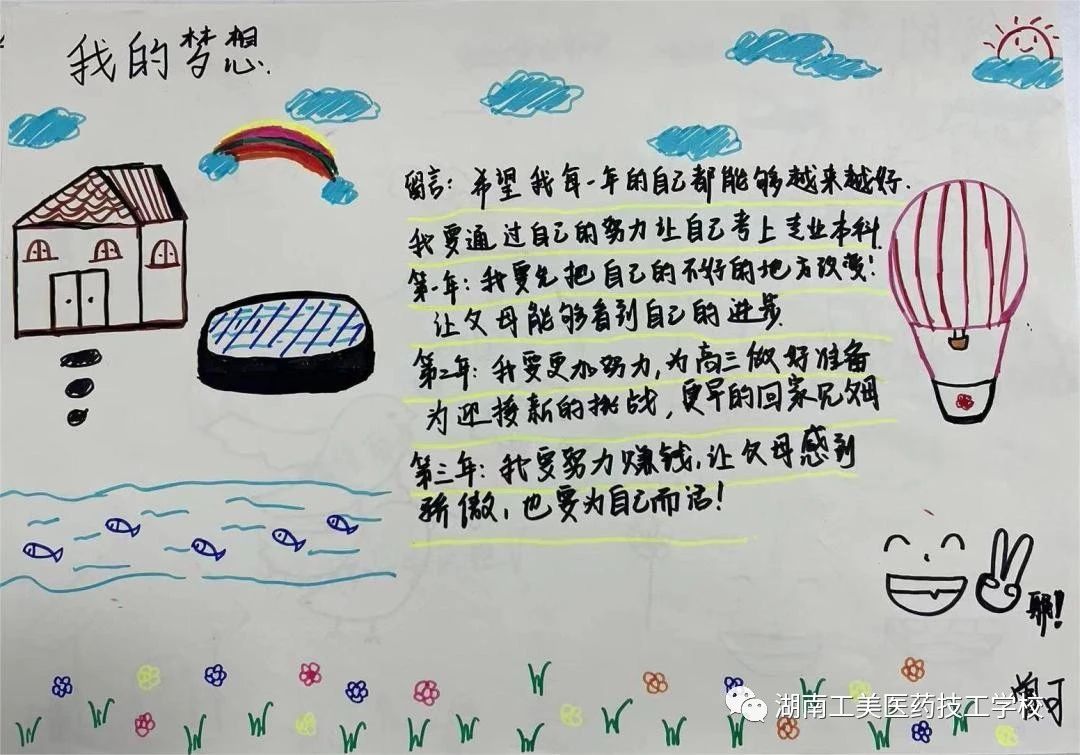 我的梦想.
留言：希望我每一年的自己都能够越来越好.
我要通过自己的努力让自己考上专业本科
第一年：我要先把自己的不好的地方改变！
让父母能够看到自己的进步.
第二年：我要更加努力，为高三做好准备
为迎接新的挑战，更早的回家见父母
第三年：我要努力赚钱，让父母感到
骄傲，也要为自己而活！
耶！
湖南工美医药技工学校